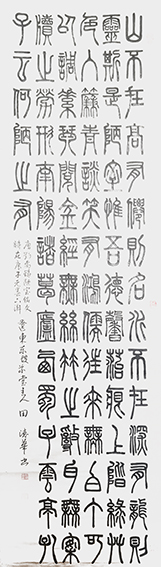 山不在高有僊則名水不在深有龍則
靈斯是陋室惟吾德馨苔痕上階綠草
色入簾青談笑有鴻儒往來無白丁可
以調素琴閱金經無絲竹之亂耳無案
牘之勞形南陽諸葛廬西蜀子雲亭孔
子云何陋之有
唐劉禹錫陋室銘文
時在庚子
遼東主人田華書